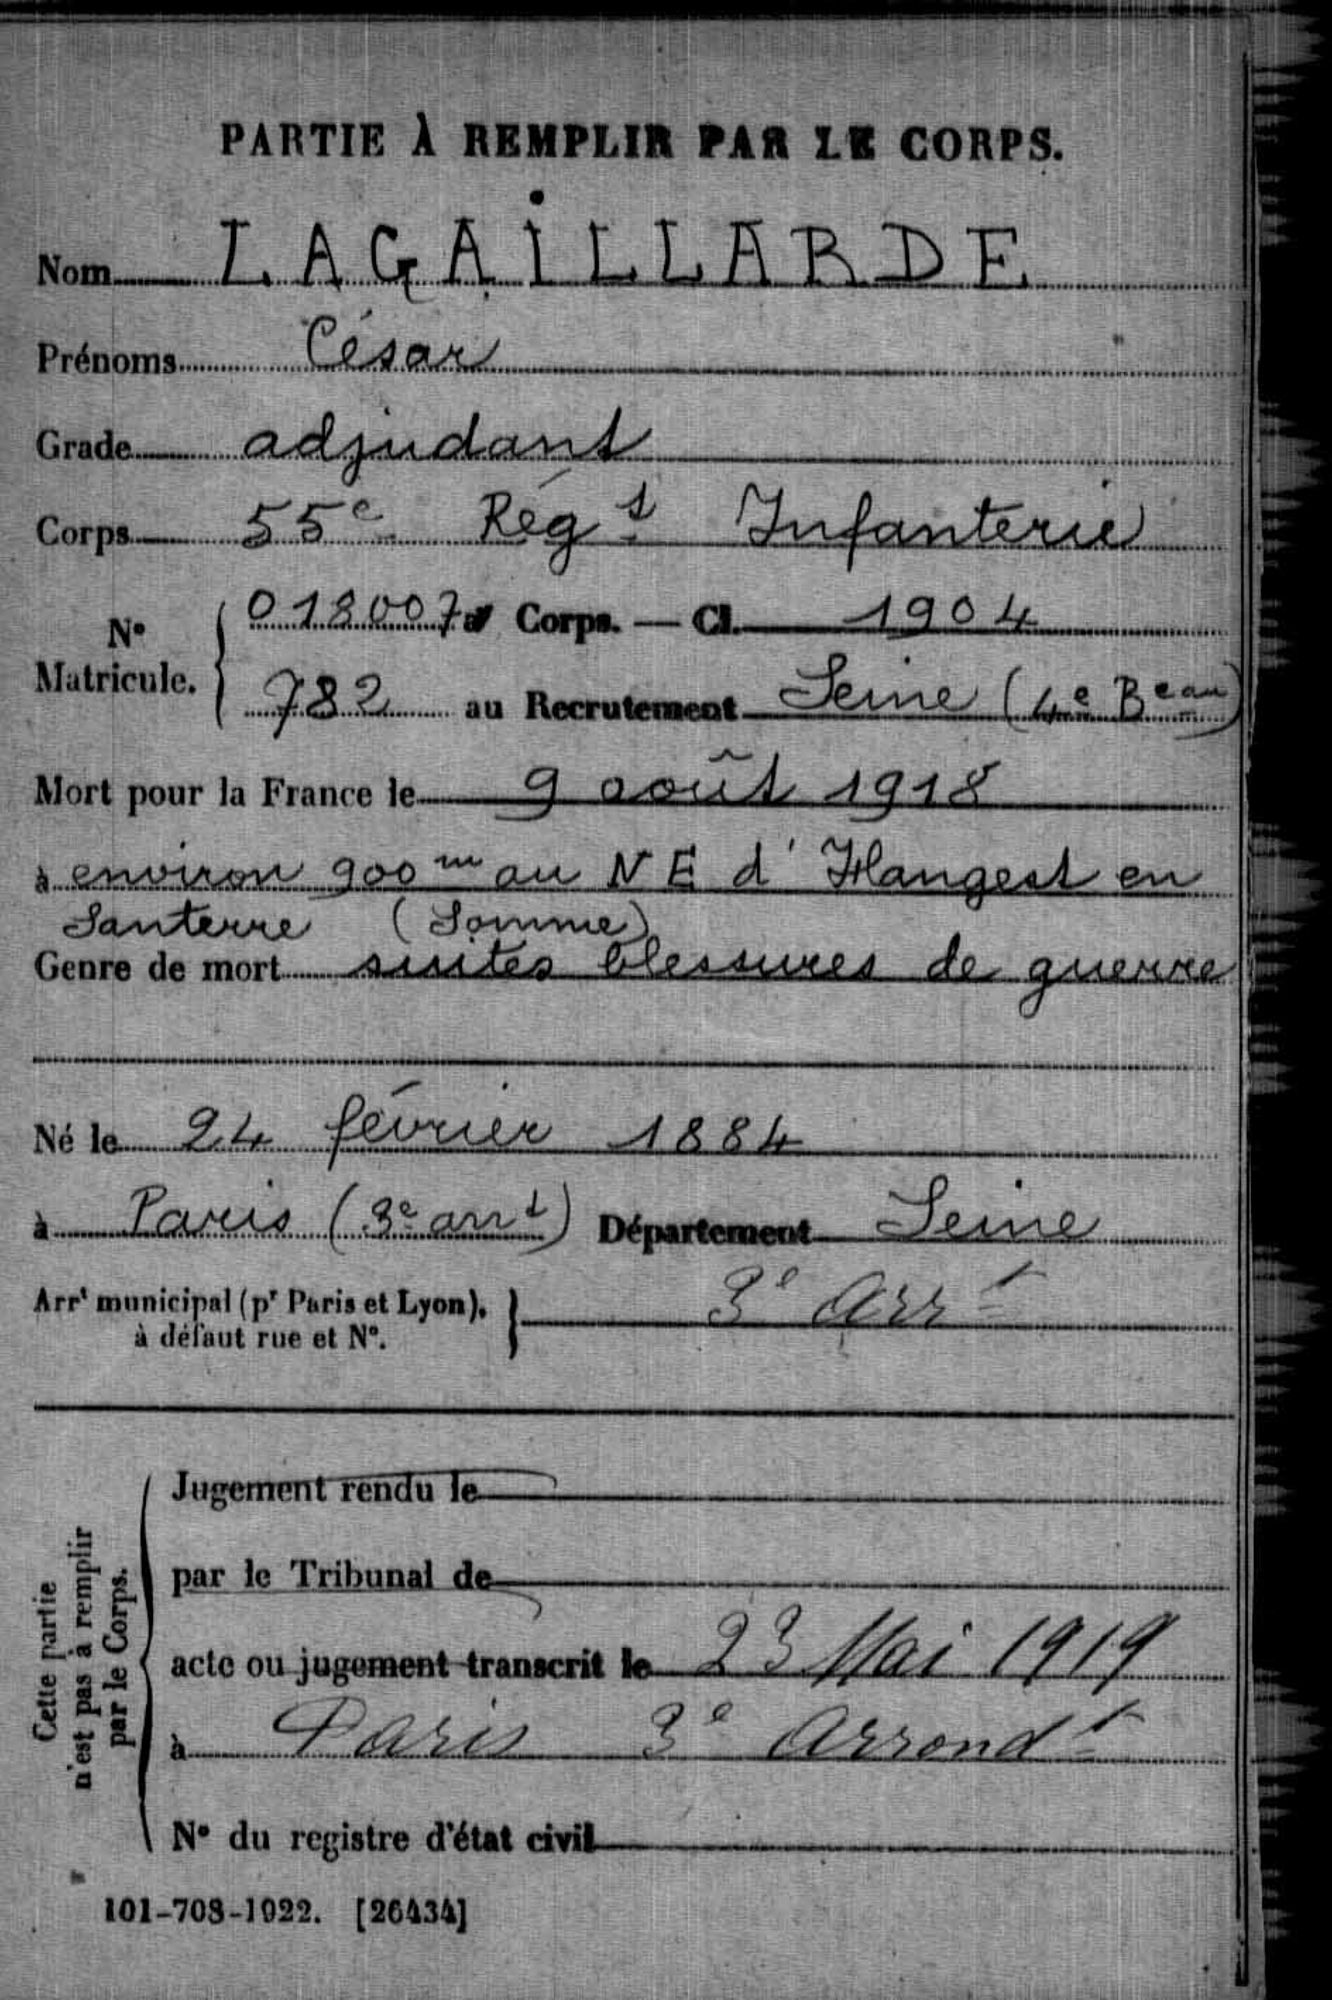 PARTIE À REMPLIR PAR LE CORPS.
Nom LAGAILLARDE
Prénoms César
Grade adjudant
Corps 55e Régt Infanterie
No Matricule. { 018007 au Corps. — Cl. 1904
782 au Recrutement Seine (4e Beau)
Mort pour la France le 9 août 1918
à environ 900m au NE d'Hangest en
Santerre (Somme)
Genre de mort suites blessures de guerre
Né le 24 février 1884
à Paris (3e arrt) Département Seine
Arrt municipal (pr Paris et Lyon), à défaut rue et No. } 3e Arrt
Cette partie n'est pas à remplir par le Corps.
Jugement rendu le
par le Tribunal de
acte ou jugement transcrit le 23 Mai 1919
à Paris 3e Arrondt
No du registre d'état civil
101-708-1922. [26434]